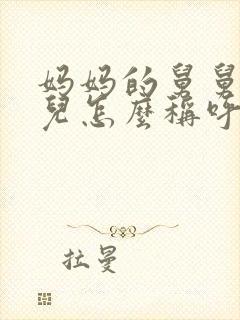 妈妈的舅舅
兒怎麼稱呼
拉曼